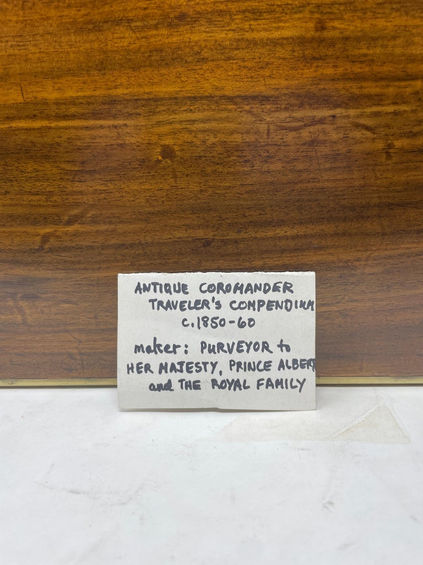 ANTIQUE COROMANDER
TRAVELER'S COMPENDIUM
c.1850-60
maker: PURVEYOR to
HER MAJESTY, PRINCE ALBERT
and THE ROYAL FAMILY